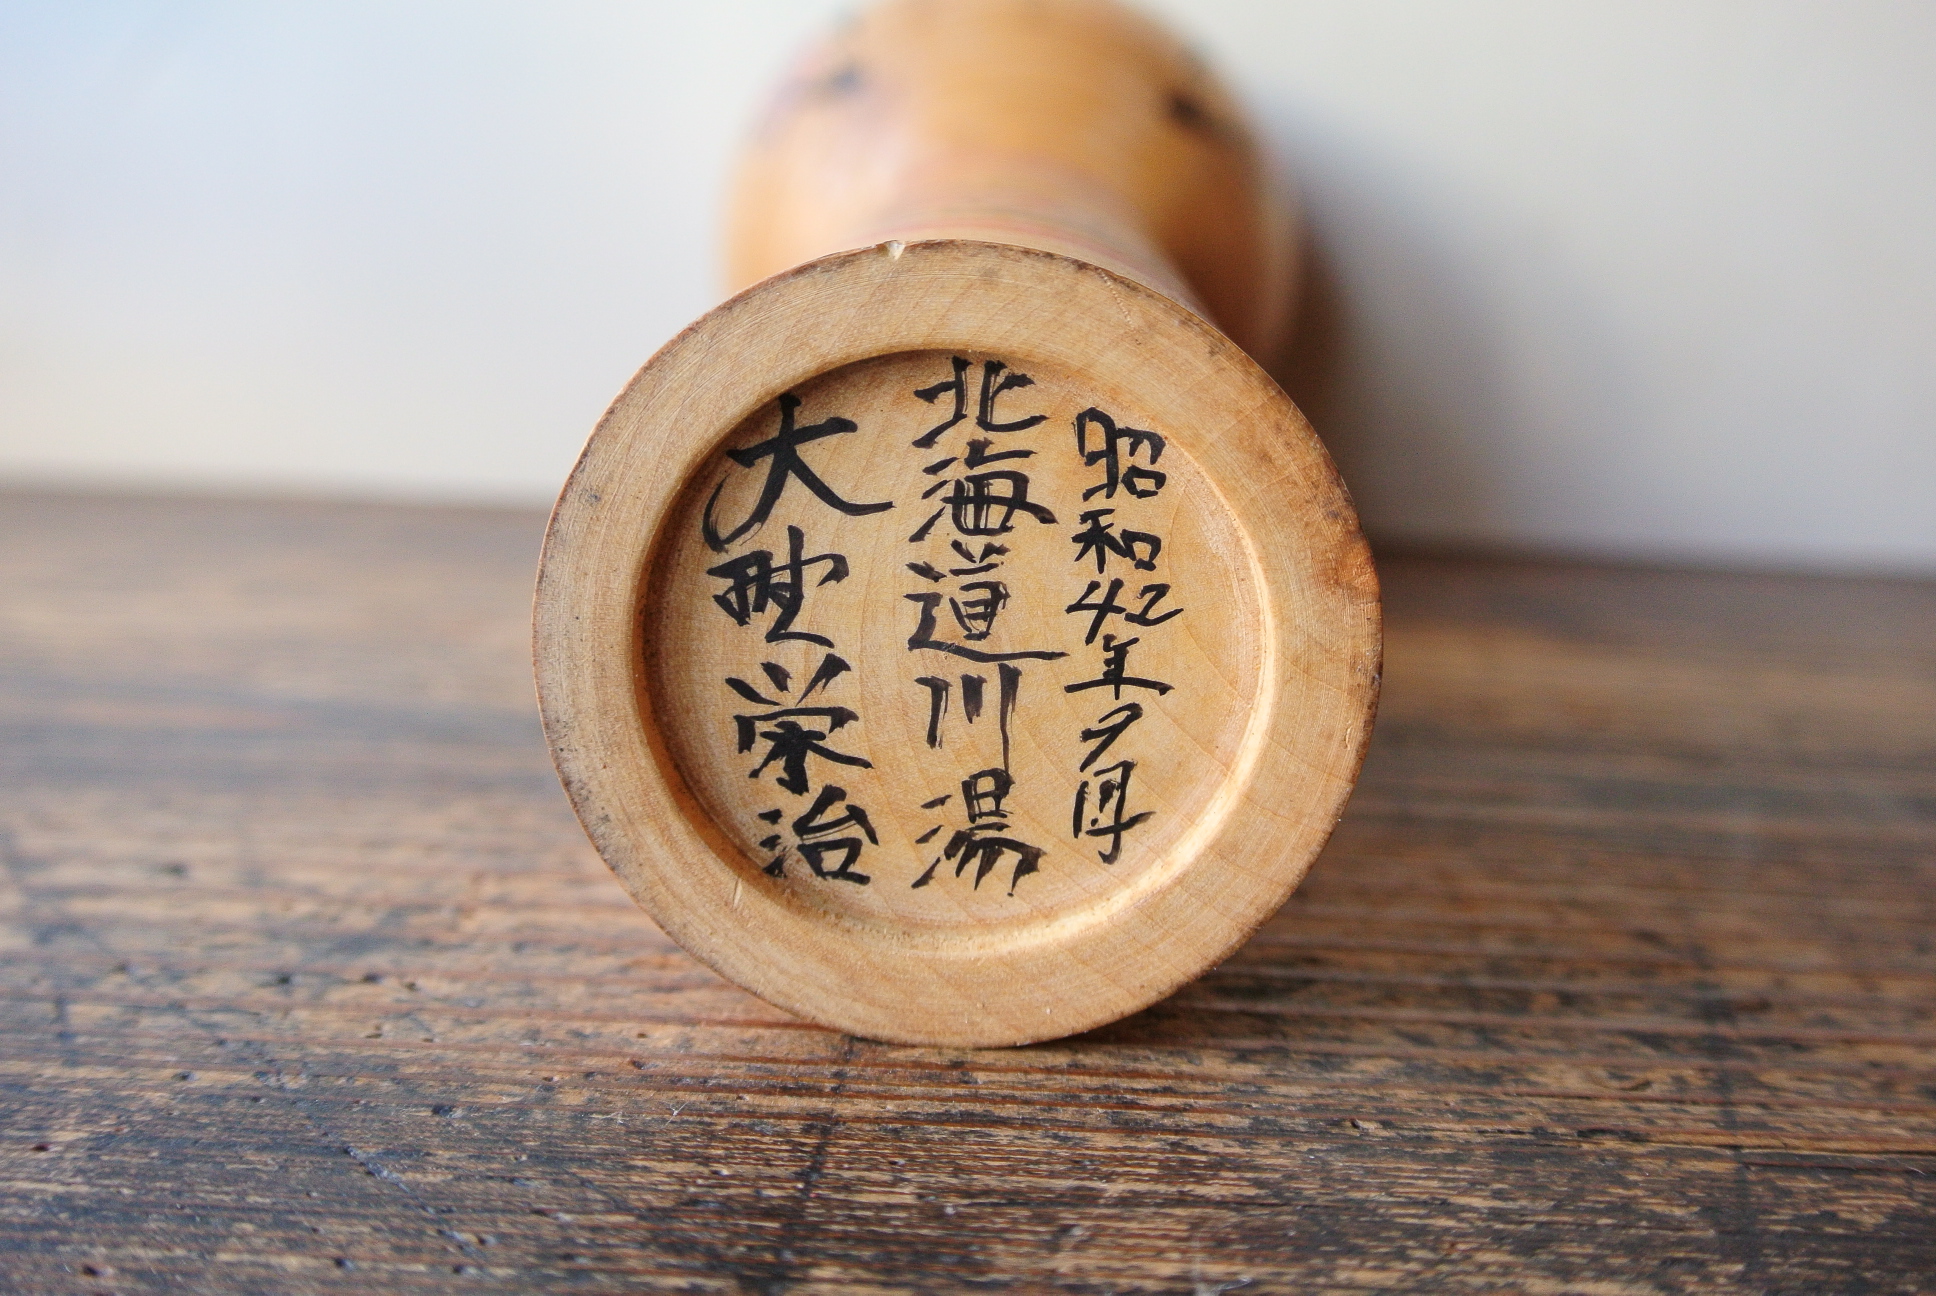 昭和42年9月
北海道川湯
大野栄治